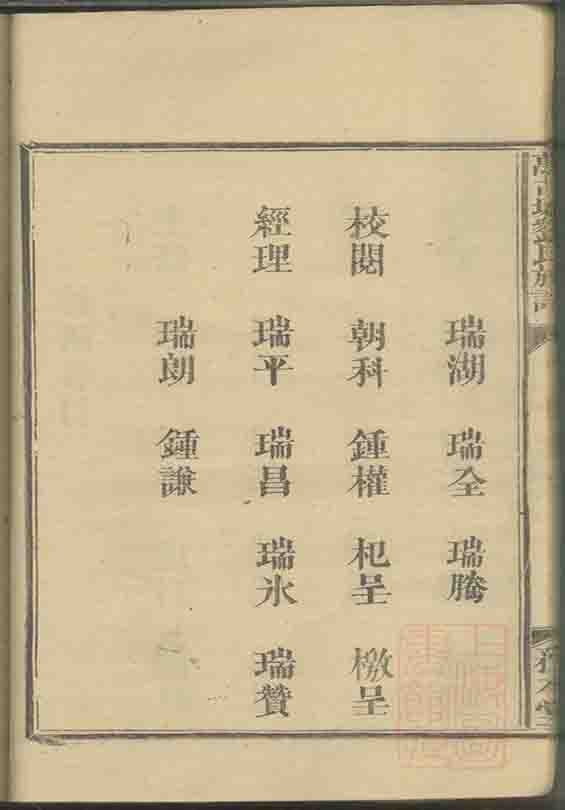 劉氏族譜
瑞湖 瑞全 瑞騰
校閱 朝科 鍾權 杞呈 檄呈
經理 瑞平 瑞昌 瑞氷 瑞贊
瑞朗 鍾謙